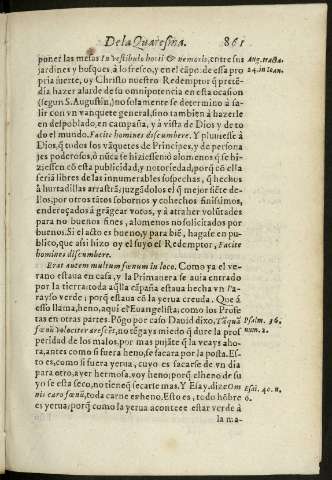 De la Quaresma. 861
poner las mesas In vestibulo horti & nemoris, entre sus
jardines y bosques, à lo fresco, y en el cãpo: de essa pro
pria suerte, oy Christo nuestro Redemptor q̃ preté
dia hazer alarde de su omnipotencia en esta ocasion
(segun S. Augustin,) no solamente se determino à sa-
lir con vn vanquete general, sino tambien à hazerle
en despoblado, en campaña, y à vista de Dios y de to
do el mundo. Facite homines discumbere. Y pluuiesse à
Dios, q̃ todos los vãquetes de Principes, y de persona
jes poderosos, ò nũca se hiziessen ò alomenos q̃ se hi-
ziessen cõ esta publicidad, y notoriedad, porq̃ cõ ella
seria libres de las innumerables sospechas, q̃ hechos
à hurtadillas arrastrã; juzgãdolos el q̃ mejor siẽte de-
llos, por otros tãtos sobornos y cohechos finissimos,
endereçados à grãgear votos, y à atraher volũtades
para no buenos fines, alomenos no solicitados por
buenos. Si el acto es bueno, y para biẽ, hagase en pu-
blico, que assi hizo oy el suyo el Redemptor, Facite
homines discumbere.
Erat autem multum fœnum in loco. Como ya el ve-
rano estaua en casa, y la Primauera se auia entrado
por la tierra: toda aq̃lla cãpaña estaua hecha vn Pa-
rayso verde; porq̃ estaua cõ la yerua crecida. Que á
esso llama, heno, aqui el Euangelista; como los Profe
tas en otras partes. Põgo por caso Dauid dixo. Tãquã
fœnũ velociter arescẽt, no tẽgays miedo q̃ dure la pros
peridad de los malos, por mas pujãte q̃ la veays aho-
ra, antes como si fuera heno, se sacara por la posta. Es-
to es, como si fuera yerua, cuyo es sacarse de vn dia
para otro, ayer hermosa, voy heno; porq̃ el heno de su
yo se esta seco, no tiene q̃ secarse mas. Y Esay, dize Om
nis caro fœnũ, toda carne es heno. Esto es, todo hõbre
es yerua; porq̃ como la yerua acontece estar verde à
la ma-
Aug. tracta.
24. in Ioan.
Psalm. 36.
num. 2.
Esai. 40. n.
6.